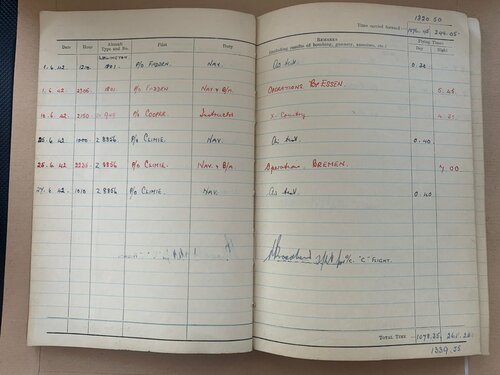 1320 50
Time carried forward:— 1076.45 244.05
Date Hour Aircraft Type and No. Pilot Duty Remarks (including results of bombing, gunnery, exercises, etc.) Flying Times Day Night
WELLINGTON
1.6.42. 1801. P/o FIDDEN NAV. Air test. 0.20
1.6.42. 2305 1801 P/o FIDDEN NAV & B/A. OPERATIONS ESSEN. 5.45
2150 P/o COOPER. Instructor X-Country
25.6.42 1000 Z 8856 P/o CLIMIE. NAV. Air test. 0.40
25.6.42. 2325 Z 8856 P/o CLIMIE. NAV. & B/A. Operations. BREMEN. 7.00
1010 Z 8856 P/o CLIMIE. NAV. Air test. 0.40
"C" FLIGHT.
Total Time 1078.25
1339.55